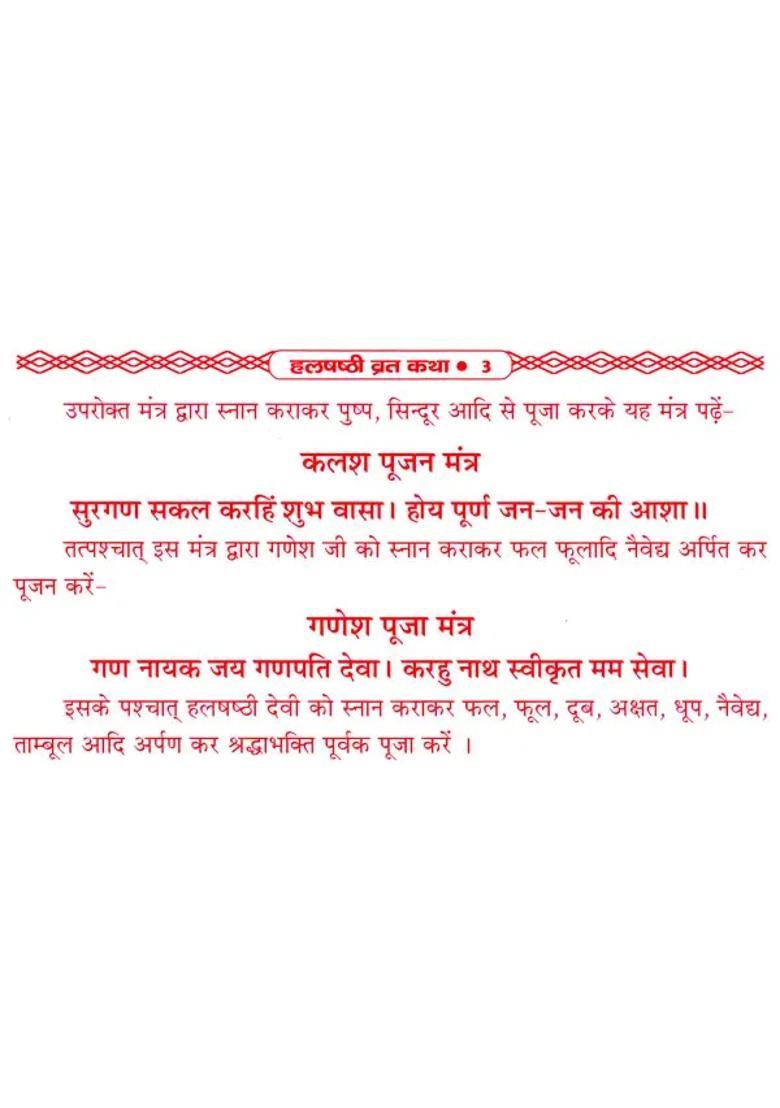 हलषष्ठी व्रत कथा ● 3
उपरोक्त मंत्र द्वारा स्नान कराकर पुष्प, सिन्दूर आदि से पूजा करके यह मंत्र पढ़ें-
कलश पूजन मंत्र
सुरगण सकल करहिं शुभ वासा। होय पूर्ण जन-जन की आशा॥
तत्पश्चात् इस मंत्र द्वारा गणेश जी को स्नान कराकर फल फूलादि नैवेद्य अर्पित कर
पूजन करें-
गणेश पूजा मंत्र
गण नायक जय गणपति देवा। करहु नाथ स्वीकृत मम सेवा।
इसके पश्चात् हलषष्ठी देवी को स्नान कराकर फल, फूल, दूब, अक्षत, धूप, नैवेद्य,
ताम्बूल आदि अर्पण कर श्रद्धाभक्ति पूर्वक पूजा करें ।